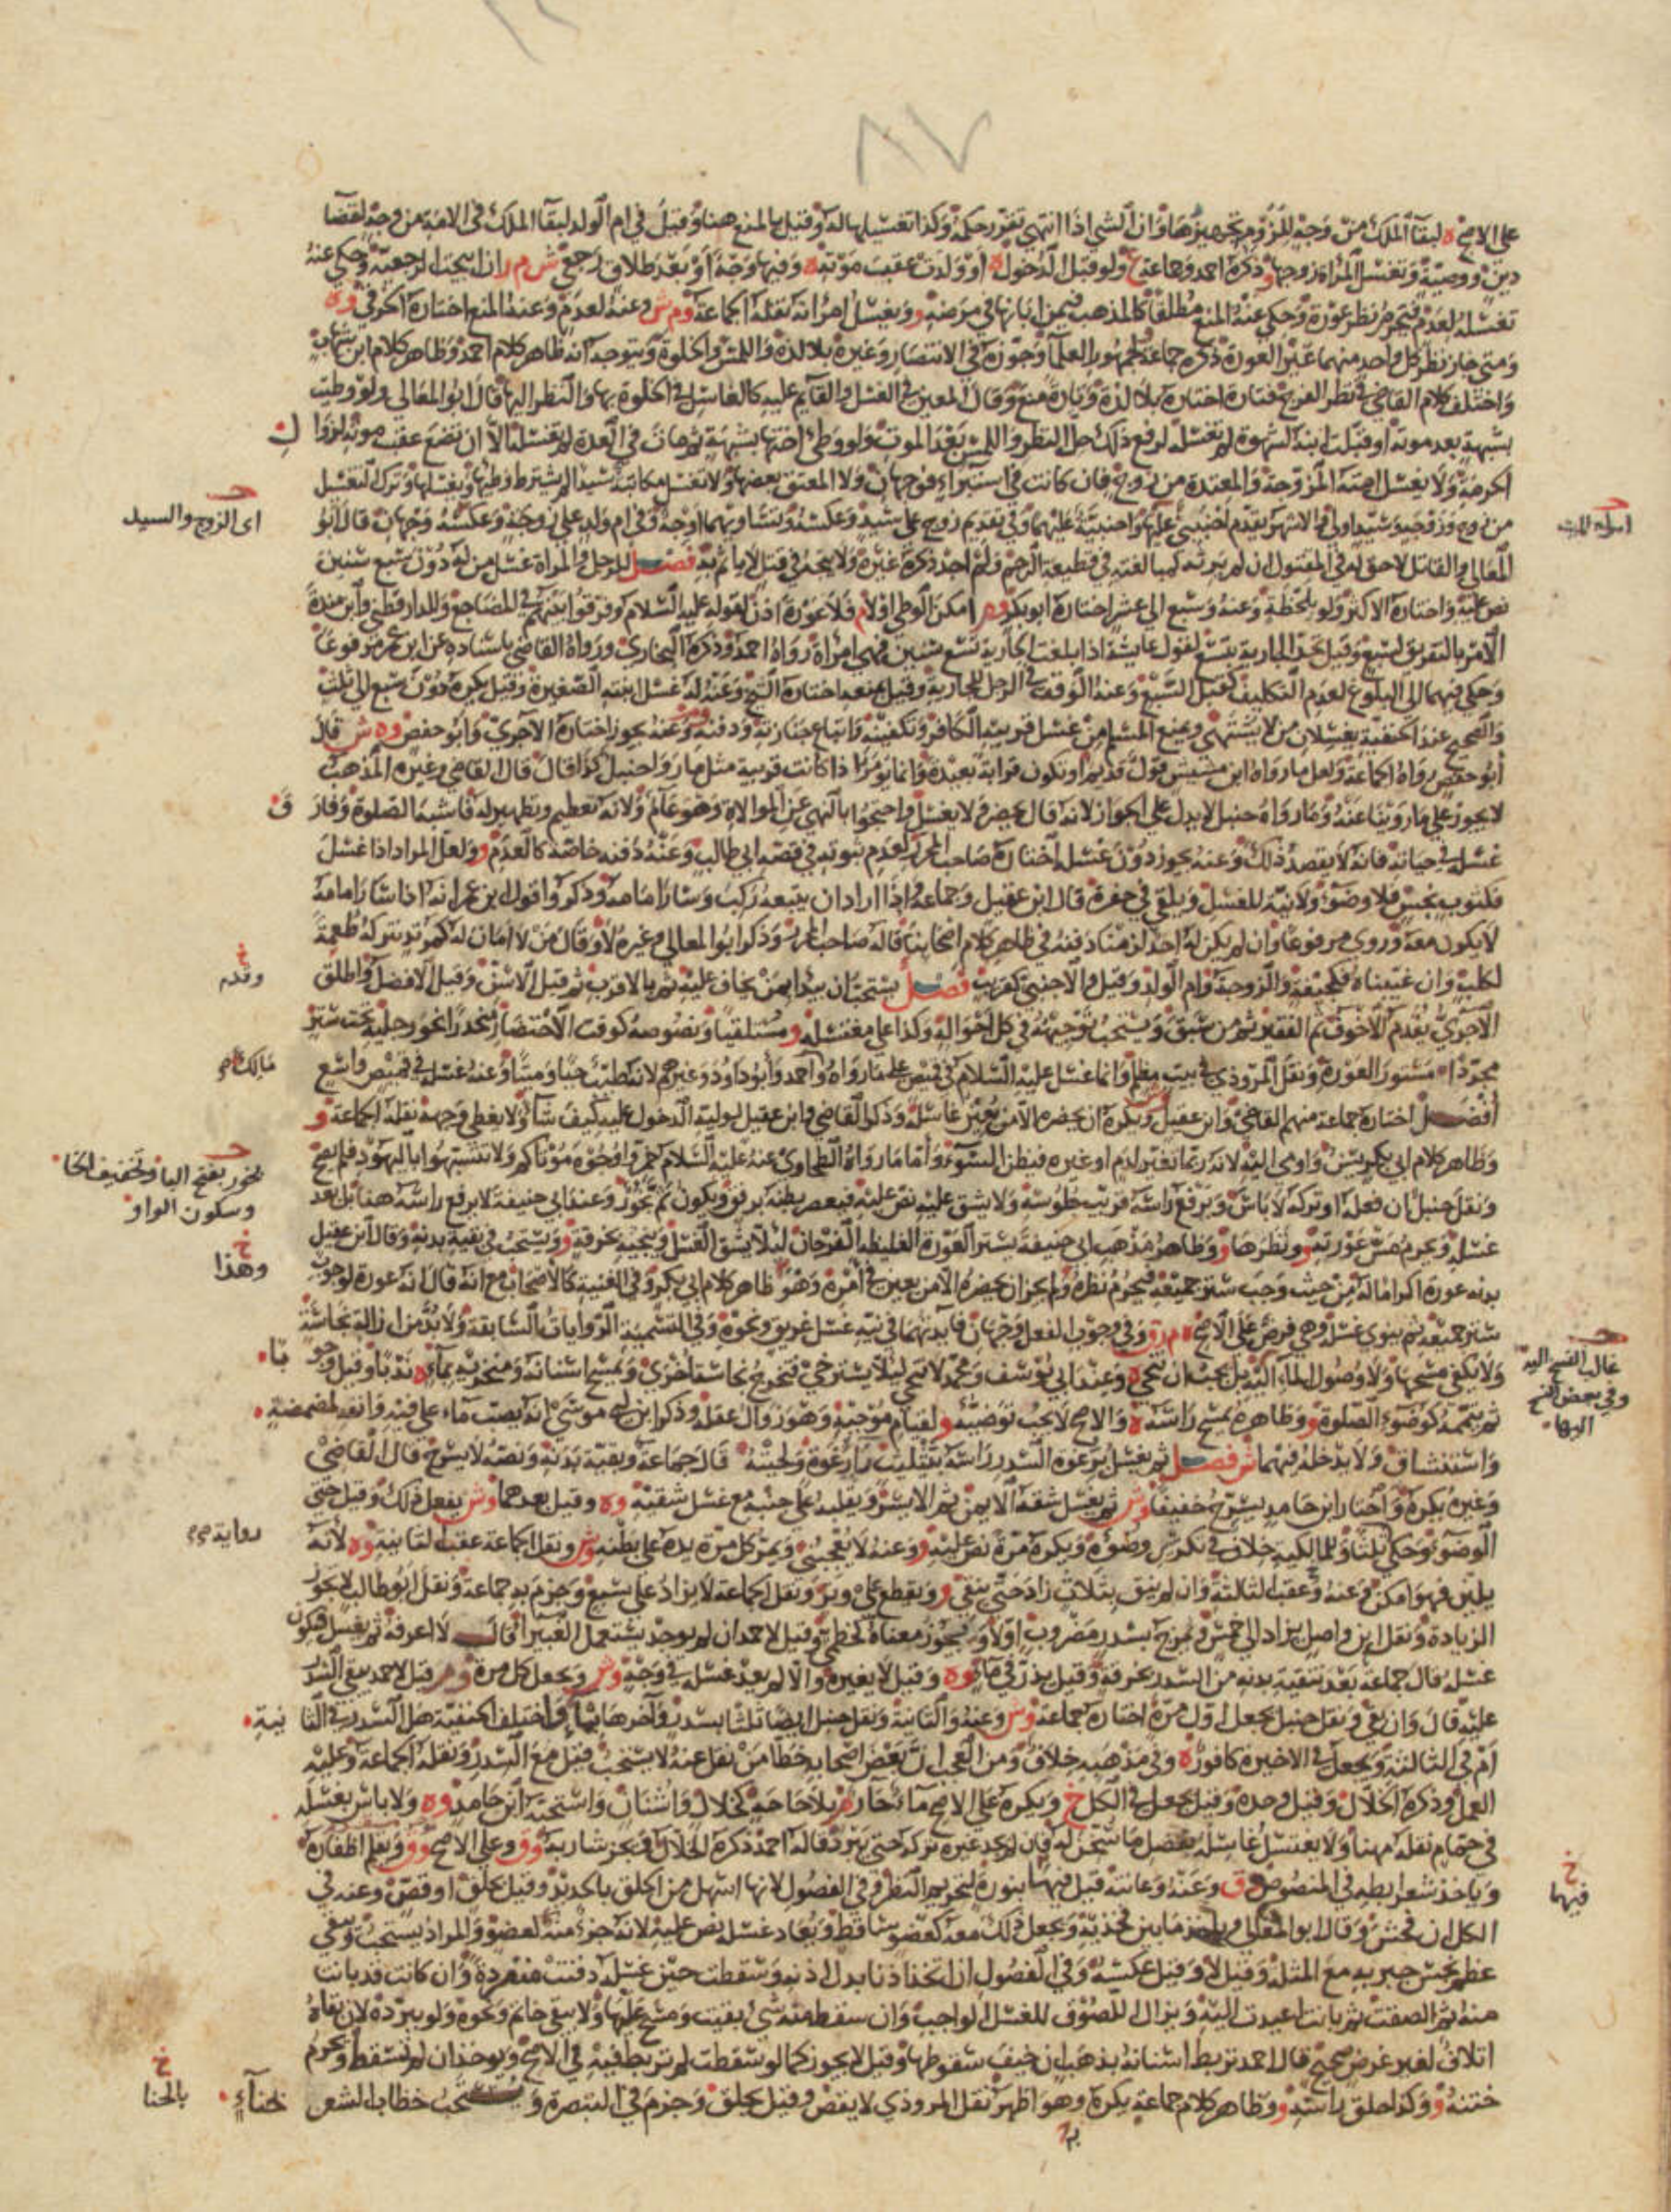 ٨٧
على الاصح ه لبقآ الملك من وجه للزوم تجهيزها وان الشي اذا انتهى تقرر حكمه وكذا تغسيلها له وقيل بالمنع هنا وقيل في ام الولد لبقآ الملك في الامة من وجه لقضا
دين ووصية وتغسل المراة زوجها و ذكره احمد وجماعة ع ولو قبل الدخول ه او ولدت عقب موته ه وفيها وجه او بعد طلاق رجعي ش م ر ان ابيحت الرجعية وحكي عنه
تغسله لعدم فيحرم نظر عورة وحكي عنه المنع مطلقا كالمذهب فيمن ابانها في مرضه و ويغسل امراته نقله الجماعة و م ش وعنه لعدم وعنه المنع اختاره الخرقي وه
ومتى جاز نظر كل واحد منهما غير العورة ذكره جماعة لجمهور العلما وجوزه في الانتصار وغيره بلا لذة واللمس والخلوة ويتوجه انه ظاهر كلام احمد وظاهر كلام ابن شهاب
واختلف كلام القاضي في نظر الفرج فتارة اختاره بلا لذة وتارة منع وقال المعين في الغسل والقايم عليه كالغاسل في الخلوة بها والنظر اليها قال ابو المعالي ولو وطيت
بشبهة بعد موته او قبلت ابنه لشهوة لم تغسله لرفع ذلك حل النظر واللمس بعد الموت ولو وطي اختها بشبهة ثم مات في العدة لم تغسله الا ان تضع عقب موته لزوا ل
الحرمة ولا يغسل امته المزوجة والمعتدة من زوج فان كانت في استبراء فوجهان ولا المعتق بعضها ولا تغسل مكاتبة سيدا لم يشترط وطيها ويغسلها وترك لتغسل
من زوج وزوجة وسيد اولى والاشهر يقدم اجنبي عليه واجنبية عليهما وفي تقديم زوج على سيد وعكسه وتساويهما اوجه وفي ام ولد على زوجة وعكسه وجهان قال ابو
المعالي والقاتل لا حق له في المقتول ان لم يرثه لمبالغته في قطيعة الرحم ولم اجد ذكره غيره ولا يتجه في قتل لا ياثم به فصل للرجل والمراة غسل من له دون سبع سنين
نص عليه واختاره الاكثر ولو بلحظة وعنه وسبع الى عشر اختاره ابو بكر وه امكن الوطي او لا م فلا عورة اذن لقوله عليه السلام وفرقوا بينهم في المضاجع وللدارقطني وابن مندة
الامر بالتفريق لسبع وقيل تحد الجارية بتسع لقول عايشة اذا بلغت الجارية تسع سنين فهي امراة رواه احمد وذكره البخاري ورواه القاضي باسناده عن ابن عمر مرفوعا
وحكي فيهما الى البلوغ لعدم التكليف كقبل السبع وعنه الوقف في الرجل للجارية وقيل بمنعه اختاره الشيخ وعنه له غسل ابنته الصغيرة وقيل يكره دون سبع الى ثلث
والصحيح عند الحنفية يغسلان من لا يشتهى ويمنع المسلم من غسل قريبه الكافر وتكفينه واتباع جنازته ودفنه وعنه يجوز اختاره الاجري وابو حفص وه ش قال
ابو حفص رواه الجماعة ولعل ما رواه ابن مشيش قول قديم او تكون قرابة بعيدة وانما يومر اذا كانت قريبة مثل ما روا حنبل كذا قال قال القاضي وغيره المذهب
لا يجوز على ما روينا عنه وما رواه حنبل لا يدل على الجواز لانه قال يحضر ولا يغسل واحتجوا بالنهي عن الموالاة وهو عام ولانه تعظيم وتطهير له فاشبه الصلوة وفار ق
غسله في حياته فانه لا يقصد ذلك وعنه يجوز دون غسله اختاره صاحب المحرر لعدم ثبوته في قصة ابي طالب وعنه دفنه خاصة كالعدم و ولعل المراد اذا غسل
فكثوب نجس فلا وضوء ولا نية للغسل ويلقى في حفرة قال ابن عقيل وجماعة واذا اراد ان يتبعه ركب وسار امامه وذكروا قول ابن عمر انه اذا سار امامه
لا يكون معه وروي مرفوعا وان لم يكن له احد لزمنا دفنه في ظاهر كلام اصحابنا قاله صاحب المحرر وذكر ابو المعالي وغيره لا وقال من لا امان له كمرتد نتركه طعمة
لكلب وان غيبناه فكجيفة والزوجة وام الولد وقيل والاجنبي كقريب فصل يستحب ان يبدا بمن يخاف عليه ثم بالاقرب ثم قيل الاسن وقيل الافضل واطلق
الاجري يقدم الاخوف ثم الفقير ثم من سبق ويستحب توجيهه في كل احواله وكذا على مغتسله و مستلقيا ونصوصه كوقت الاحتضار منحدرا نحو رجليه تحت ستر
مجردا ه مستور العورة ونقل المروذي في بيت مظلم وانما غسل عليه السلام في قميص على ما رواه واحمد وابو داود وغيرهم لانه طيب حيا وميتا وعنه غسله في قميص واسع
افضل اختاره جماعة منهم القاضي وابن عقيل ويكره ان يحضره الا من يعين غاسله وذكر القاضي وابن عقيل لوليه الدخول عليه كيف شا ولا يغطى وجهه نقله الجماعة و
وظاهر كلام ابي بكر يسن واومى اليه لانه ربما تغير لدم او غيره فيظن السوء و واما ما رواه الطحاوي عنه عليه السلام خمروا وجوه موتاكم ولا تتشبهوا باليهود فلم يصح
ونقل حنبل ان فعله او تركه لا باس ويرفع راسه قريب جلوسه ولا يشق عليه نص عليه فيعصر بطنه برفق ويكون ثم بخور وعند ابي حنيفة لا يرفع راسه هنا بل بعد
غسله ويحرم مس عورته و ونظرها و وظاهر مذهب ابي حنيفة يستر العورة الغليظة الفرجان ليلا يشق الغسل وينجيه بخرقة و ويستحب في بقية بدنه وقال ابن عقيل
بدنه عورة اكراما له من حيث وجب ستر جميعه فيحرم نظره ولم يجز ان يحضره الا من يعين في امره وهو ظاهر كلام ابي بكر وفي الغنية كالاصحاب مع انه قال انه عورة لوجوب
ستر جميعه ثم ينوي غسله وهي فرض على الاصح ه م ر ق وفي وجوب الفعل وجهان فايدتهما في نية غسل غريق ونحوه وفي التسمية الروايات السابقة ولا بد من ازالة نجاسة
ولا يكفي مسحها ولا وصول الماء اليه بل يجب ان ينجى ه وعند ابي يوسف ومحمد لا ينجى ليلا يسترخي فتخرج نجاسة اخرى ويمسح اسنانه ومنخريه بماء ه ندبا وقيل وجو با
ثم يتممه كوضوء الصلوة و وظاهره يمسح راسه ه والاصح لا يجب توضئه و لقيام موجبه وهو زوال عقله وذكر ابن ابي موسى انه يصب ماء على فيه وانفه لمضمضة
واستنشاق ولا يدخله فيهما ش فصل ثم يغسل برغوة السدر راسه بتثليث را رغوة ولحيته قال جماعة وبقية بدنه ونصه لا يسرح قال القاضي
وغيره يكره واختار ابن حامد يسرح خفيفا و ش ثم يغسل شقه الايمن ثم الايسر ويقلبه على جنبه مع غسل شقيه وه وقيل بعدهما وش يفعل ذلك وقيل حتى
الوضوء وحكي لنا وللمالكية خلاف في تكرر وضوئه ويكره مرة نص عليه و وعنه لا يعجبني ويمر كل مرة يده على بطنه وش ونقل الجماعة عقب الثانية وه لانه
يلين فهو امكن وعنه عقب الثالثة وان لم ينق بثلاث زاد حتى ينقي و ويقطع على وتر ونقل الجماعة لا يزاد على سبع وجزم به جماعة ونقل ابو طالب لا يجوز
الزيادة ونقل ابن واصل يزاد الى خمس ويمزج بسدر مضروب اولا وه ويجوز معناه كخطمي وقيل لاحمد ان لم يوجد يستعمل الغبيرا قال لا اعرفه ثم يغسل فيكون
غسله قال جماعة بعد تنقية بدنه من السدر بخرقة وقيل يذر في ماء وه وقيل لا يغيره والا لم يعد غسله في وجه وش ويجعل كل مرة و م ر قيل لاحمد يبقى السدر
عليه قال وان بقي ونقل حنبل يجعل اول مرة اختاره جماعة وش وعنه والثانية ونقل حنبل ايضا ثلثا بسدر واخرها بماء واختلف الحنفية هل السدر في الثا نية
ام في الثالثة ويجعل في الاخيرة كافورا ه وفي مذهبه خلاف ومن العجب ان بعض اصحابه خطا من نقل عنه لا يستحب قيل مع السدر ونقله الجماعة وعليه
العمل وذكره الخلال وقيل وحده وقيل يجعل في الكل خ ويكره على الاصح ماء حار ه ر بلا حاجة كخلال واشنان واستحبه ابن حامد وه ولا باس بغسله
في حمام نقله مهنا ولا يغتسل غاسله بفضل ما سخن له فان لم يجد غيره تركه حتى يبرد قاله احمد ذكره الخلال ويجز شاربه و ق و على الاصح و ق ويقلم اظفاره
وياخذ شعر ابطه في المنصوص و ق وعنه وعانته قيل فيهما بنورة لتحريم النظر وفي الفصول لانها اسهل من الحلق بالحديد وقيل بحلق او قص وعنه في
الكل ان فحش وقال ابو المعالي وياخذ ما بين فخذيه ويجعل ذلك معه كعضو ساقط ويعاد غسله نص عليه لانه جزء منه كعضو والمراد يستحب ويبقى
عظم نجس جبر به مع المثلة وقيل لا وقيل عكسه وفي الفصول ان اتخذ اذنا بدل اذنه وسقطت حين غسله دفنت منفردة وان كانت قد بانت
منه ثم الصقت ثم بانت اعيدت اليه ويزال اللصوق للغسل الواجب وان سقط منه شي بقيت ومسح عليها ولا يبقى خاتم ونحوه ولو ببرده لان بقاه
اتلاف لغير غرض صحيح قال احمد تربط اسنانه بذهب ان خيف سقوطها وقيل لا يجوز كما لو سقطت لم تربط فيه في الاصح ويوخذ ان لم تسقط ويحرم
ختنه و وكذا حلق راسه و وظاهر كلام جماعة يكره وهو اظهر نقل المروذي لا يقص وقيل يحلق وجزم في التبصرة ويستحب خضاب الشعر بحناء
اى الزوج والسيد
خ
وقدم
مالك
يخور بفتح اليا وتخفيف الخا
وسكون الواو
خ
وهذا
رواية
غالب النسخ اليه
وفي بعض النسخ
اليها
خ
فيهما
خ
بالحنا